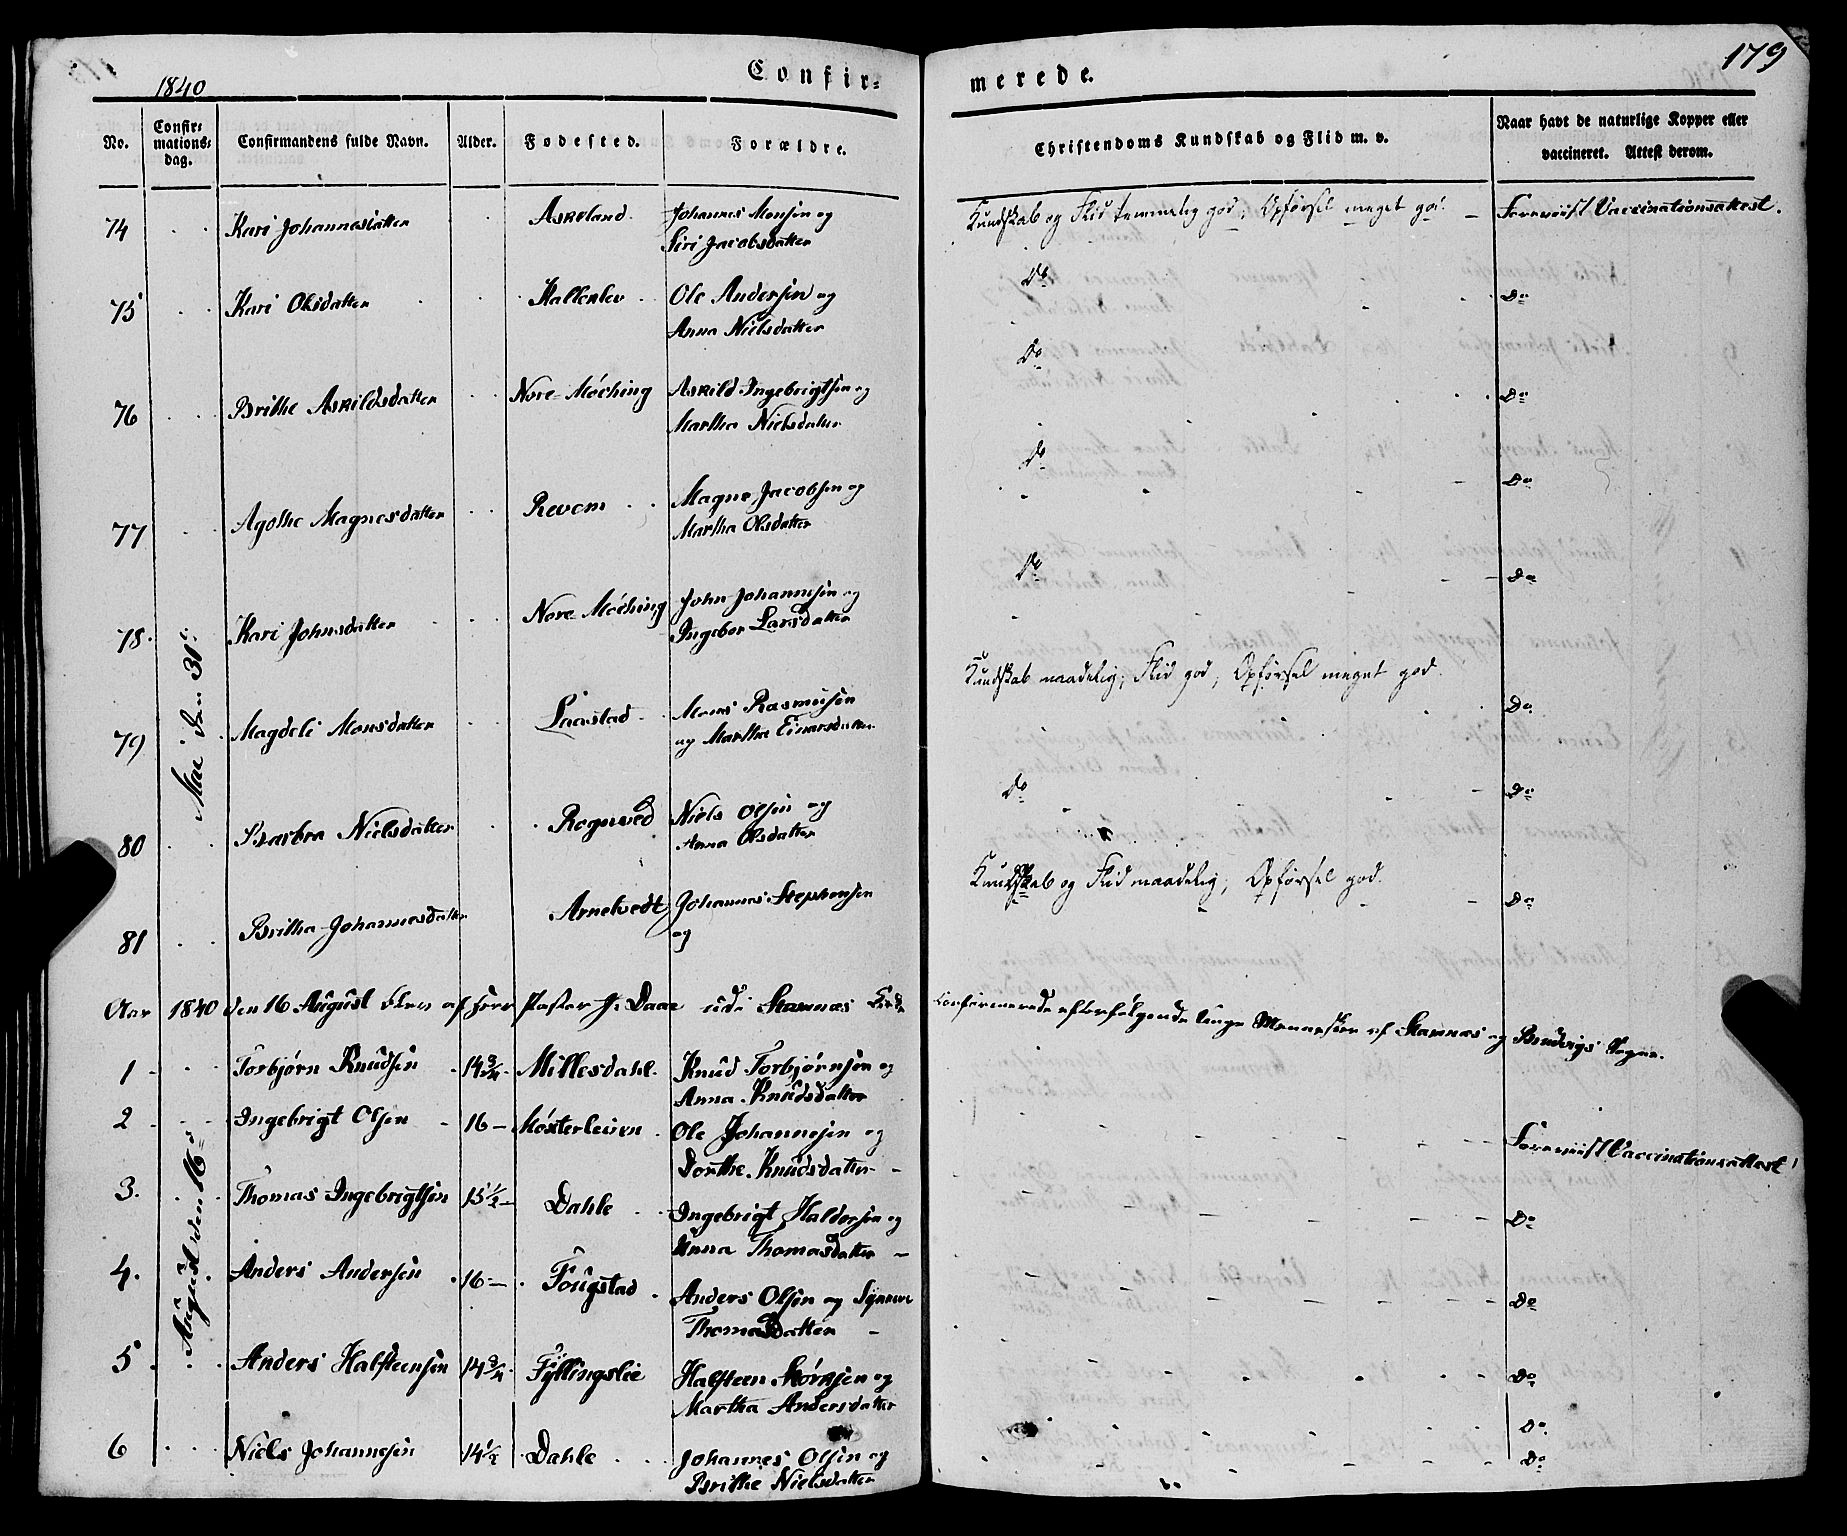 179
1840
Confir=
merede.
No.
Confir=
mations=
dag.
Confirmandens fulde Navn.
Alder.
Fødested.
Forældre.
Christendoms Kundskab og Flid m. v.
Naar havt de naturlige Kopper eller
vaccineret. Attest derom.
Mai den 31te
74 Kari Johannesdatter Askeland Johannes Monsen og
Siri Jacobsdatter
Kundskab og Flid temmelig god; Opførsel meget god. Foreviist Vaccinationsattest.
75 Kari Olsdatter Ole Andersen og
Anna Nielsdatter
Do Do
76 Brithe Askildsdatter Nore-Møching Askild Ingebrigtsen og
Martha Nielsdatter
Do Do
77 Agothe Magnesdatter Revem Magne Jacobsen og
Martha Olsdatter
Do Do
78. Kari Johnsdatter Nore Møching John Johannesen og
Ingebor Larsdatter
Do Do
79 Magdeli Monsdatter Laastad Mons Rasmusen
og Martha Einarsdatter
Kundskab maadelig; Flid god; Opførsel meget god. Do
80 Barbra Nielsdatter Rognved Niels Olsen og
Anna Olsdatter
Do Do
81 Britha Johannesdatter Arnetvedt Johannes Stephensen
og
Kundskab og Flid maadelig; Opførsel god. Do
Aar 1840 den 16 August af Herr Pastor J. Daae udi Stamnæs Kirke Confirmerede efterfølgende unge Mennesker af Stamnæs og Sogne.
August den 16de
1 Torbjørn Knudsen 14 3/4 Millesdahl Knud Torbjørnsen og
Anna Knudsdatter
2 Ingebrigt Olsen 16 Ole Johannesen og
Dorthe Knudsdatter
Foreviist Vaccinationsattest
3. Thomas Ingebrigtsen 15 1/2 Dahle Ingebrigt Haldorsen og
Anna Thomasdatter
Do
4. Anders Andersen 16 Fougstad Anders Olsen og Synneve
Thomasdatter
Do
5 Anders Halsteensen 14 3/4 Fyllingslie Halsteen Størksen og
Martha Andersdatter
Do
Do
6 Niels Johannesen 14 1/2 Dahle Johannes Olsen og
Brithe Nielsdatter
Do